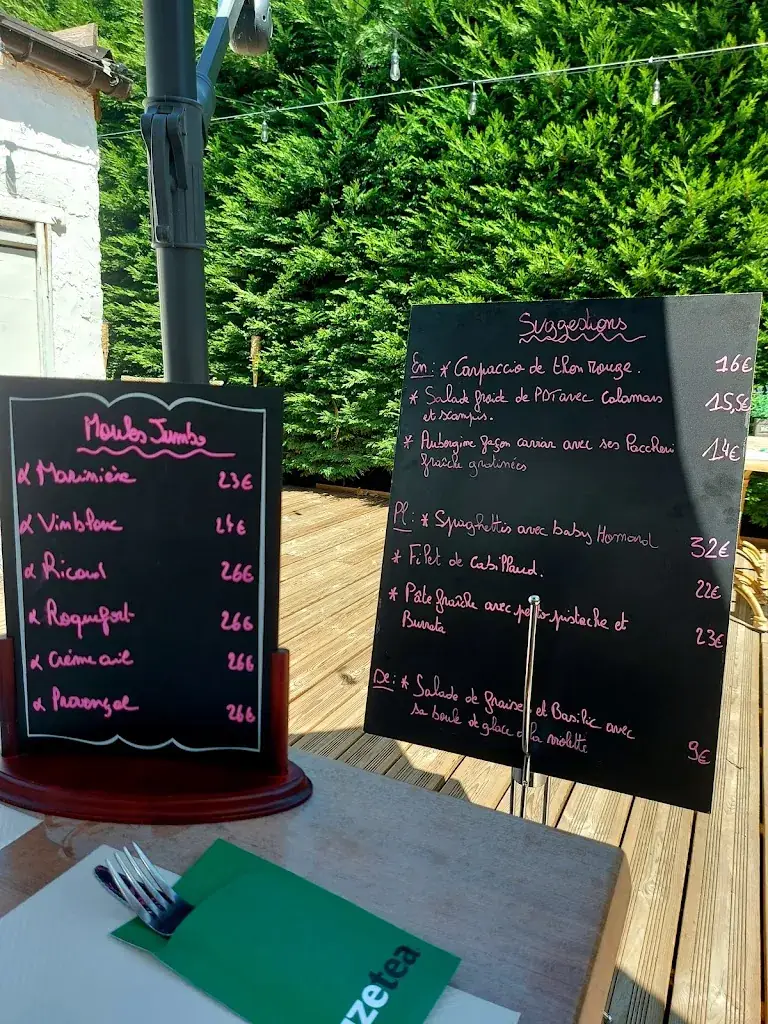 Moules Jumbo
Marinière 23€
Vin blanc 24€
Ricard 26€
Roquefort 26€
Crème ail 26€
Provençal 26€
Suggestions
En: * Carpaccio de thon rouge. 16€
* Salade froide de PDT avec Calamars 15,5€
et scampis.
* Aubergine façon caviar avec ses Paccheri 14€
fraîche gratinées
Pl: * Spaghettis avec baby Homard 32€
* Filet de Cabillaud. 22€
* Pâte fraîche avec pesto pistache et 23€
Burrata
De: * Salade de fraises et Basilic avec
sa boule de glace à la violette 9€
zetea